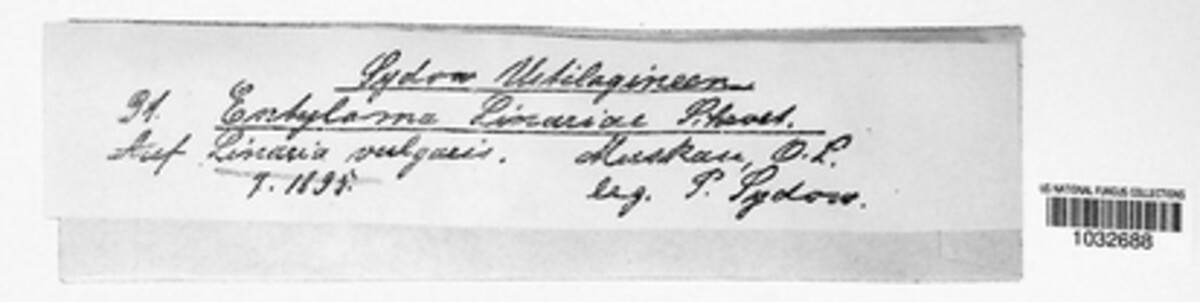 Sydow Ustilagineen
31. Entyloma Linariae Schroet.
Auf Linaria vulgaris. Muskau, O. L.
7. 1895. leg. P. Sydow.
US NATIONAL FUNGUS COLLECTIONS
1032688